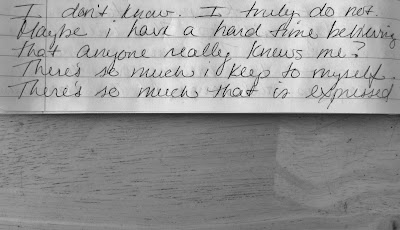 I don't know. I truly do not.
Maybe i have a hard time believing
that anyone really knows me?
There's so much i keep to myself.
There's so much that is expressed